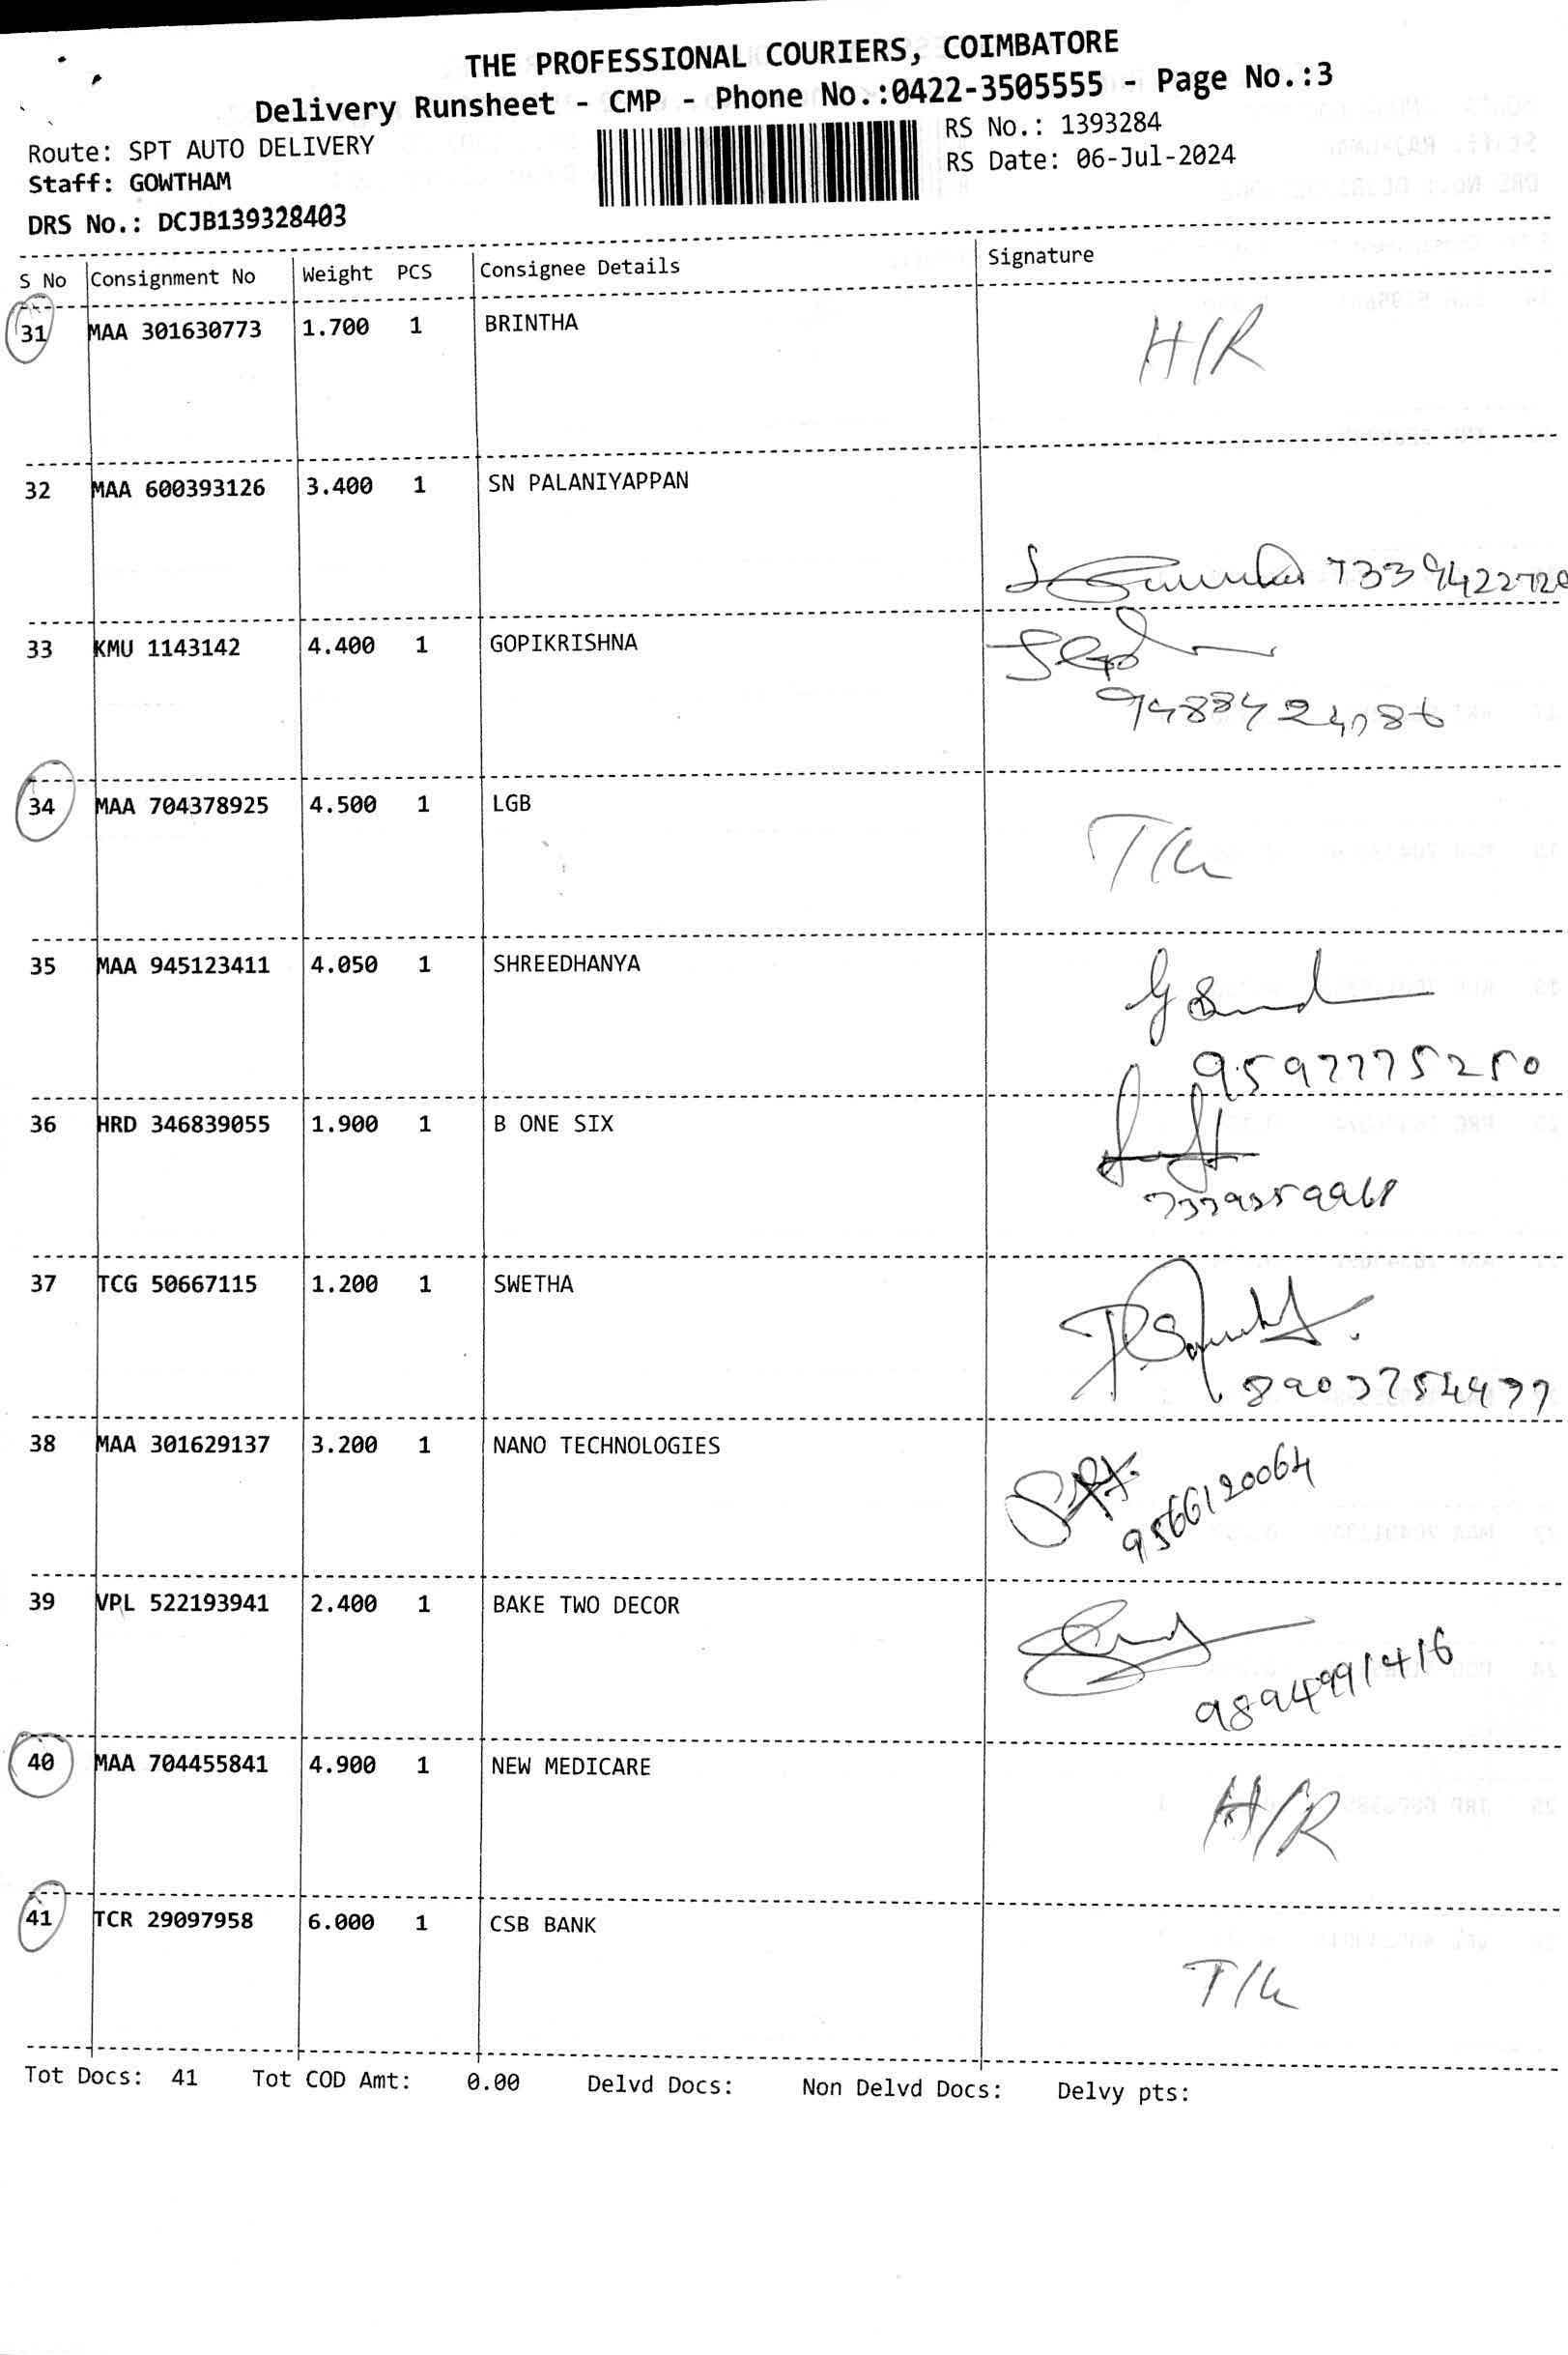 THE PROFESSIONAL COURIERS, COIMBATORE
Delivery Runsheet - CMP - Phone No.:0422-3505555 - Page No.:3
Route: SPT AUTO DELIVERY
RS No.: 1393284
Staff: GOWTHAM
RS Date: 06-Jul-2024
DRS No.: DCJB139328403
S No Consignment No Weight PCS Consignee Details Signature
31 MAA 301630773 1.700 1 BRINTHA H/R
32 MAA 600393126 3.400 1 SN PALANIYAPPAN
33 KMU 1143142 4.400 1 GOPIKRISHNA
34 MAA 704378925 4.500 1 LGB
35 MAA 945123411 4.050 1 SHREEDHANYA
9597775250
36 HRD 346839055 1.900 1 B ONE SIX
37 TCG 50667115 1.200 1 SWETHA
38 MAA 301629137 3.200 1 NANO TECHNOLOGIES
9566120064
39 VPL 522193941 2.400 1 BAKE TWO DECOR
9894991416
40 MAA 704455841 4.900 1 NEW MEDICARE H/R
41 TCR 29097958 6.000 1 CSB BANK
Tot Docs: 41 Tot COD Amt: 0.00 Delvd Docs: Non Delvd Docs: Delvy pts: